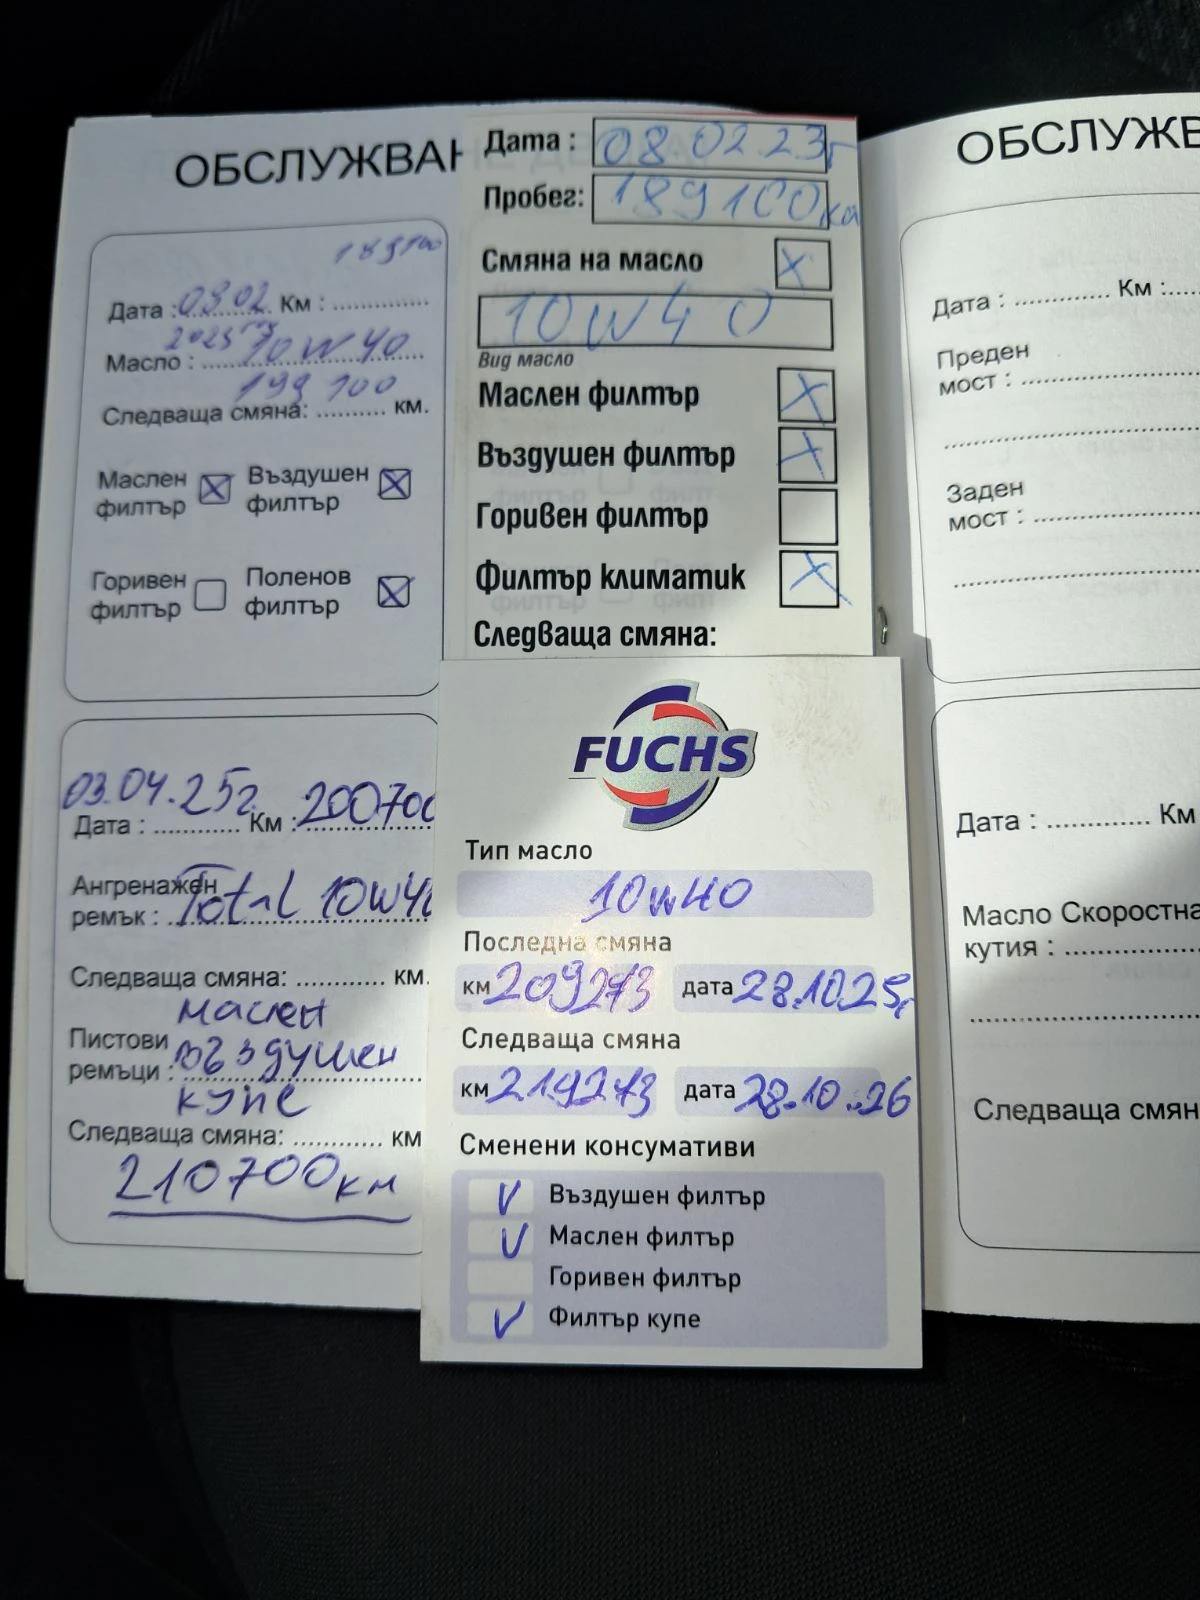 ОБСЛУЖВАН
189100
Дата : 08.02 Км :
2023
Масло : 10W40
199 100
Следваща смяна: км.
Маслен филтър Въздушен филтър
Горивен филтър Поленов филтър
03.04.25г. 200700
Дата : Км :
Ангренажен
ремък : Total 10W40
Следваща смяна: км.
маслен
Пистови
ремъци : въздушен
купе
Следваща смяна: км
210700км
Дата : 08.02.23г
Пробег: 189100км
Смяна на масло
10W40
Вид масло
Маслен филтър
Въздушен филтър
Горивен филтър
Филтър климатик
Следваща смяна:
FUCHS
Тип масло
10W40
Последна смяна
км 209273 дата 28.10.25г
Следваща смяна
км 219273 дата 28.10.26
Сменени консумативи
V Въздушен филтър
V Маслен филтър
Горивен филтър
V Филтър купе
ОБСЛУЖВ
Дата : Км :
Преден
мост :
Заден
мост :
Дата : Км
Масло Скоростна
кутия :
Следваща смян